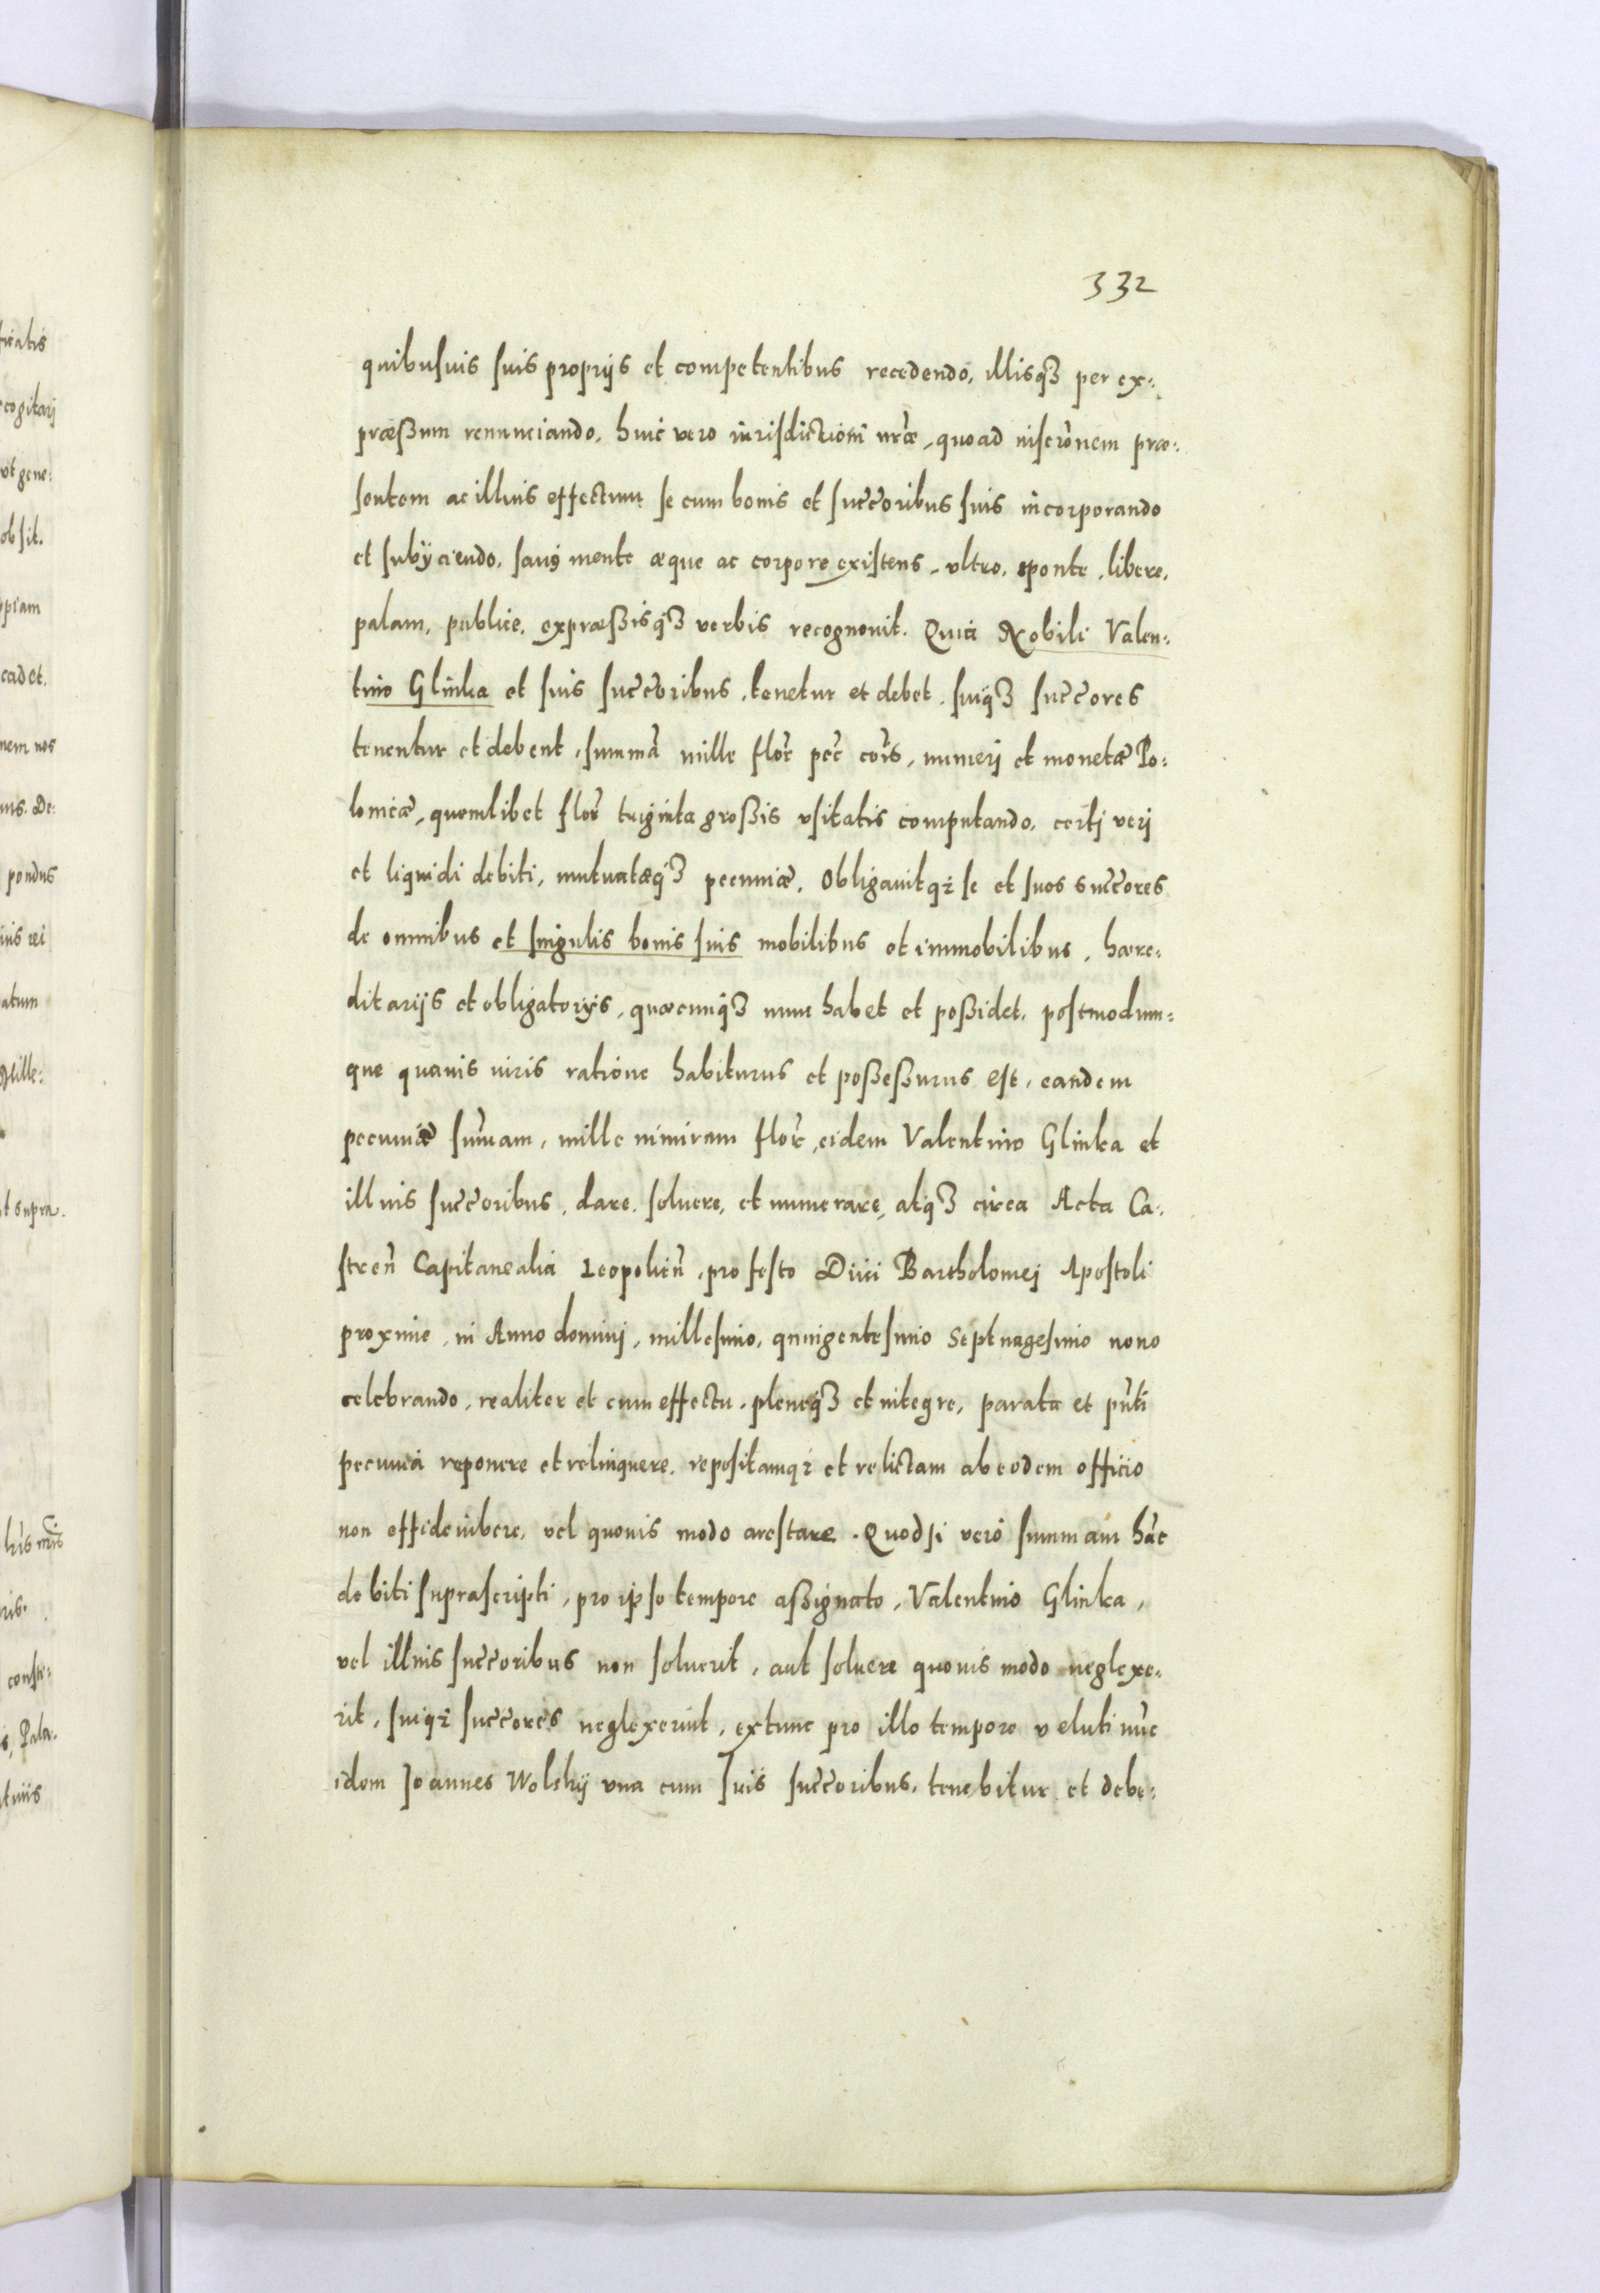 332
quibusuis suis proprijs et competentibus recedendo, illisq3 per ex-
præßum renunciando, huic vero iurisdictioni nr̃æ, quoad inscrõnem præ-
sentem ac illius effectum se cum bonis et succ̃oribus suis incorporando
et subÿciendo, sanus mente æque ac corpore existens, vltro, sponte, libere,
palam, publice, expræßisq3 verbis recognouit. Quia Nobili Valen-
tino Glinka et suis succ̃oribus, tenetur et debet, suiq3 succ̃ores
tenentur et debent, summã mille flor̃ pec̃ cõis, numerj et monetæ Po-
lonicæ, quemlibet flor̃ triginta großis vsitatis computando, certj verj
et liquidi debiti, mutuatæq3 pecuniæ. Obligauitq3 se et suos succ̃ores
de omnibus et singulis bonis suis mobilibus et immobilibus, hære-
ditarijs et obligatorijs, quæcunq3 nunc habet et poßidet, postmodum-
que quauis iuris ratione habiturus et poßeßurus est, eandem
pecuniæ sum̃am, mille nimirum flor̃, eidem Valentino Glinka et
illius succ̃oribus, dare, soluere, et numerare, atq3 circa Acta Ca-
stren̄ Capitanealia Leopolien̄, pro festo Diui Bartholomej Apostoli
proxime, in Anno dominj, millesimo, quingentesimo Septuagesimo nono
celebrando, realiter et cum effectu, pleneq3 et integre, parata et pñti
pecunia reponere et relinquere, repositamq3 et relictam ab eodem officio
non
 vel quouis modo arestare. Quodsi verò summam hãc
debiti suprascripti, pro ipso tempore aßignato, Valentino Glinka,
vel illius succ̃oribus non soluerit, aut soluere quouis modo neglexe-
rit, suiq3 succ̃ores neglexerint, extunc pro illo tempore veluti nũc
idem Joannes Wolskÿ vna cum suis succ̃oribus, tenebitur et debe-